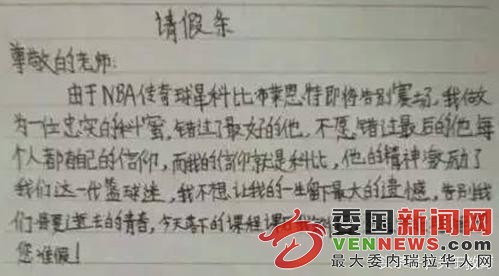 请假条
尊敬的老师:
由于NBA传奇球星科比布莱恩特即将告别赛场,我做
为一位忠实的科蜜,错过了最好的他,不愿错过最后的他,每
个人都有自己的信仰,而我的信仰就是科比,他的精神激励了
我们这一代篮球迷,我不想让我的一生留下最大的遗憾,告别我
们最逝去的青春,今天落下的课程课后我
您准假!
委国新闻网
VENNEWS.COM
最大委内瑞拉华人网